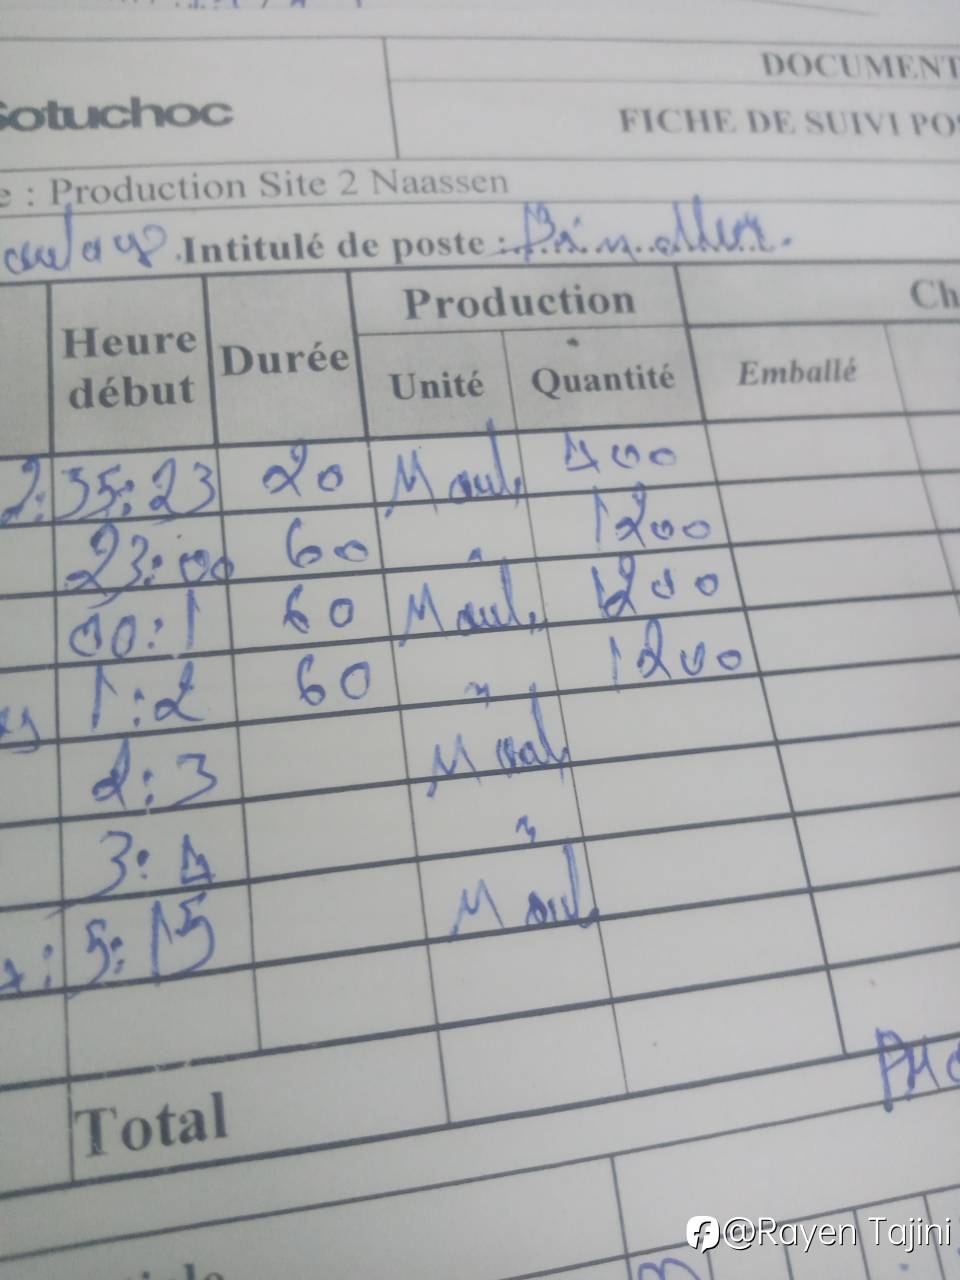 Sotuchoc
DOCUMENT
FICHE DE SUIVI POS
e : Production Site 2 Naassen
Intitulé de poste :
Heure début Durée Production Ch
Unité Quantité Emballé
2: 35:23 20 Moul, 400
23:00 60 " 1200
00:1 60 Moul, 1200
1:2 60 " 1200
2:3 Moul,
3:4 "
5:15 Moul,
Total
@Rayen Tajini